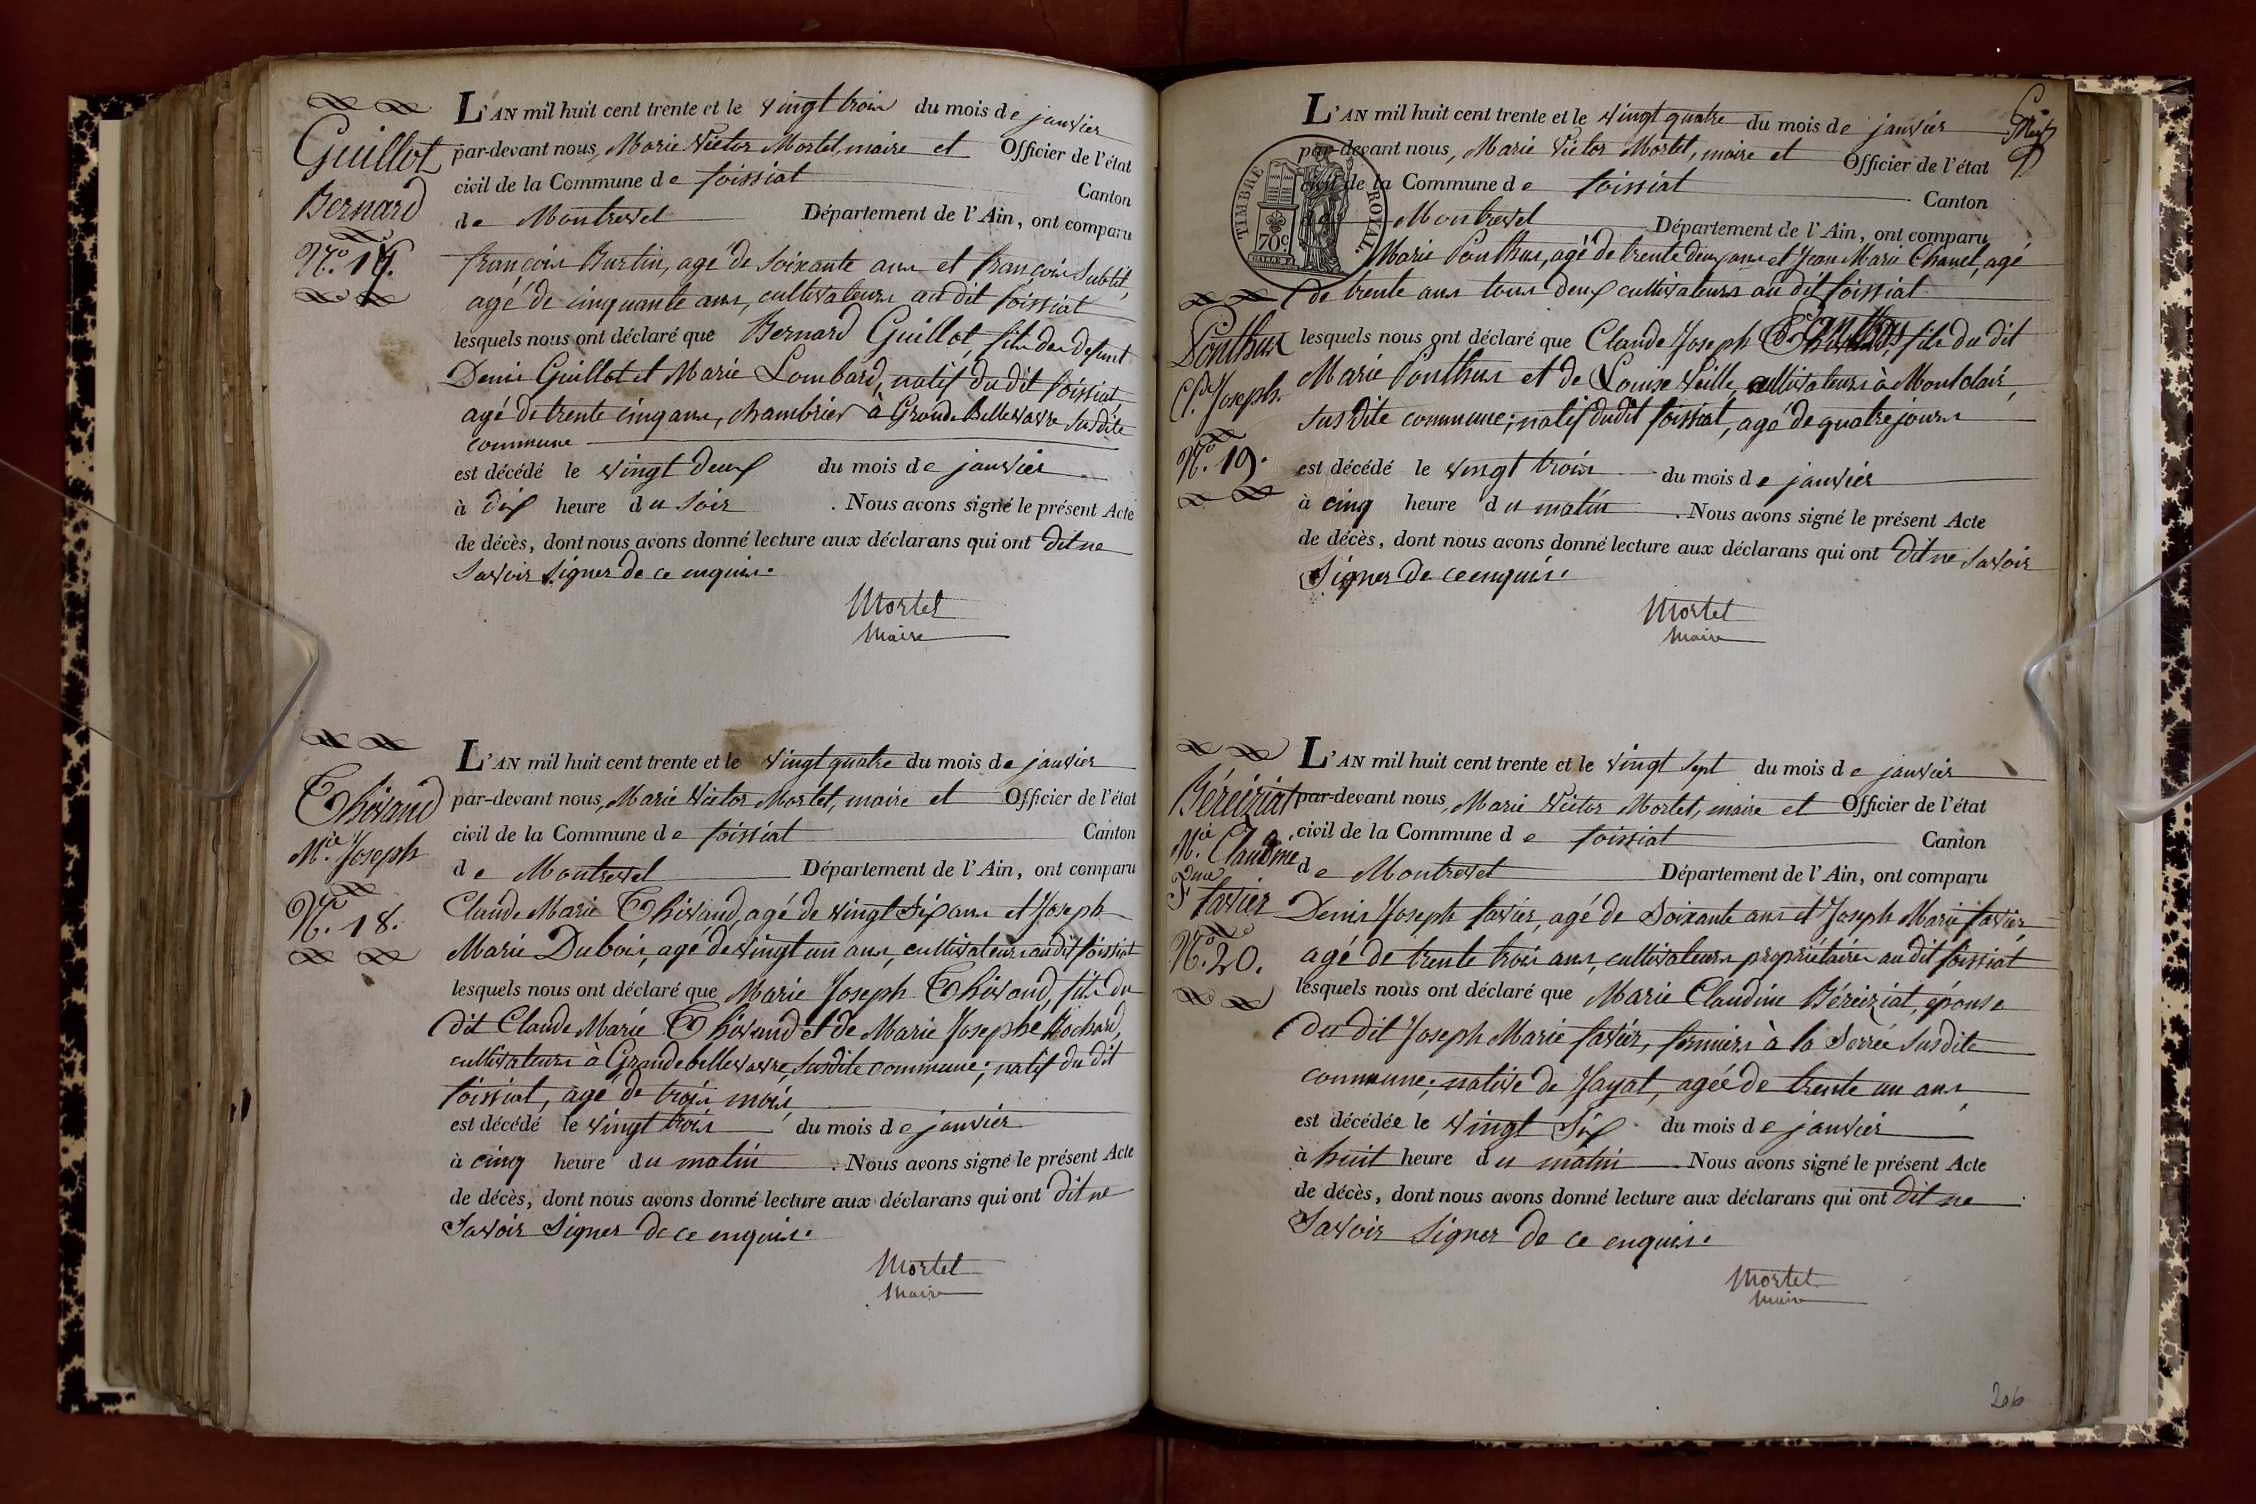 Guillot
Bernard
N.º 17.
L'AN mil huit cent trente et le vingt trois du mois de janvier
par-devant nous, Marie Victor Mortel, maire et Officier de l'état
civil de la Commune de foissiat Canton
de Montrevel Département de l'Ain, ont comparu
françois Burtin, agé de soixante ans et françois Subtil,
agé de cinquante ans, cultivateurs au dit foissiat
lesquels nous ont déclaré que Bernard Guillot fils des defunt
Denis Guillot et Marie Lombard, natif du dit foissiat,
agé de trente cinq ans, chambrier à Grande Bellevavre susdite
commune
est décédé le vingt deux du mois de janvier
à dix heure du soir . Nous avons signé le présent Acte
de décès, dont nous avons donné lecture aux déclarans qui ont dit ne
savoir signer de ce enquis.
Mortel
Maire
Thivand
M.ie Joseph
N.º 18.
L'AN mil huit cent trente et le vingt quatre du mois de janvier
par-devant nous, Marie Victor Mortel, maire et Officier de l'état
civil de la Commune de foissiat Canton
de Montrevel Département de l'Ain, ont comparu
Claude Marie Thivand, agé de vingt six ans et Joseph
Marie Dubois, agé de vingt un ans, cultivateurs au dit foissiat
lesquels nous ont déclaré que Marie Joseph Thivand, fils du
dit Claude Marie Thivand et de Marie Josephe Rochard,
cultivateurs à Grande bellevavre, susdite commune; natif du dit
foissiat, agé de trois mois,
est décédé le vingt trois du mois de janvier
à cinq heure du matin . Nous avons signé le présent Acte
de décès, dont nous avons donné lecture aux déclarans qui ont dit ne
Savoir Signer de ce enquis.
Mortel
Maire
TIMBRE ROYAL
70c
L'AN mil huit cent trente et le vingt quatre du mois de janvier
par-devant nous, Marie Victor Mortel, maire et Officier de l'état
civil de la Commune de foissiat Canton
de Montrevel Département de l'Ain, ont comparu
Marie Ponthus, agé de trente deux ans et Jean Marie Chanel, agé
de trente ans tous deux cultivateurs au dit foissiat
Ponthus
C.de Joseph.
N.º 19.
lesquels nous ont déclaré que Claude Joseph Ponthus, fils du dit
Marie Ponthus et de Louise Veille, cultivateurs à Montclair,
susdite commune; natif dudit foissiat, agé de quatre jours
est décédé le vingt trois du mois de janvier
à cinq heure du matin . Nous avons signé le présent Acte
de décès, dont nous avons donné lecture aux déclarans qui ont dit ne savoir
Signer de ce enquis.
Mortel
Maire
Béreiziat
M.ie Claudine
F.me favier
N.º 20.
L'AN mil huit cent trente et le vingt sept du mois de janvier
par-devant nous, Marie Victor Mortel, maire et Officier de l'état
civil de la Commune de foissiat Canton
de Montrevel Département de l'Ain, ont comparu
Denis Joseph favier, agé de Soixante ans et Joseph Marie favier,
agé de trente trois ans, cultivateurs propriétaires au dit foissiat
lesquels nous ont déclaré que Marie Claudine Béreiziat, épouse
du dit Joseph Marie favier, fermiers à la Serrée susdite
commune; native de Jayat, agée de trente un ans,
est décédée le vingt Six du mois de janvier
à huit heure du matin . Nous avons signé le présent Acte
de décès, dont nous avons donné lecture aux déclarans qui ont dit ne
Savoir Signer de ce enquis.
Mortel
Maire
206